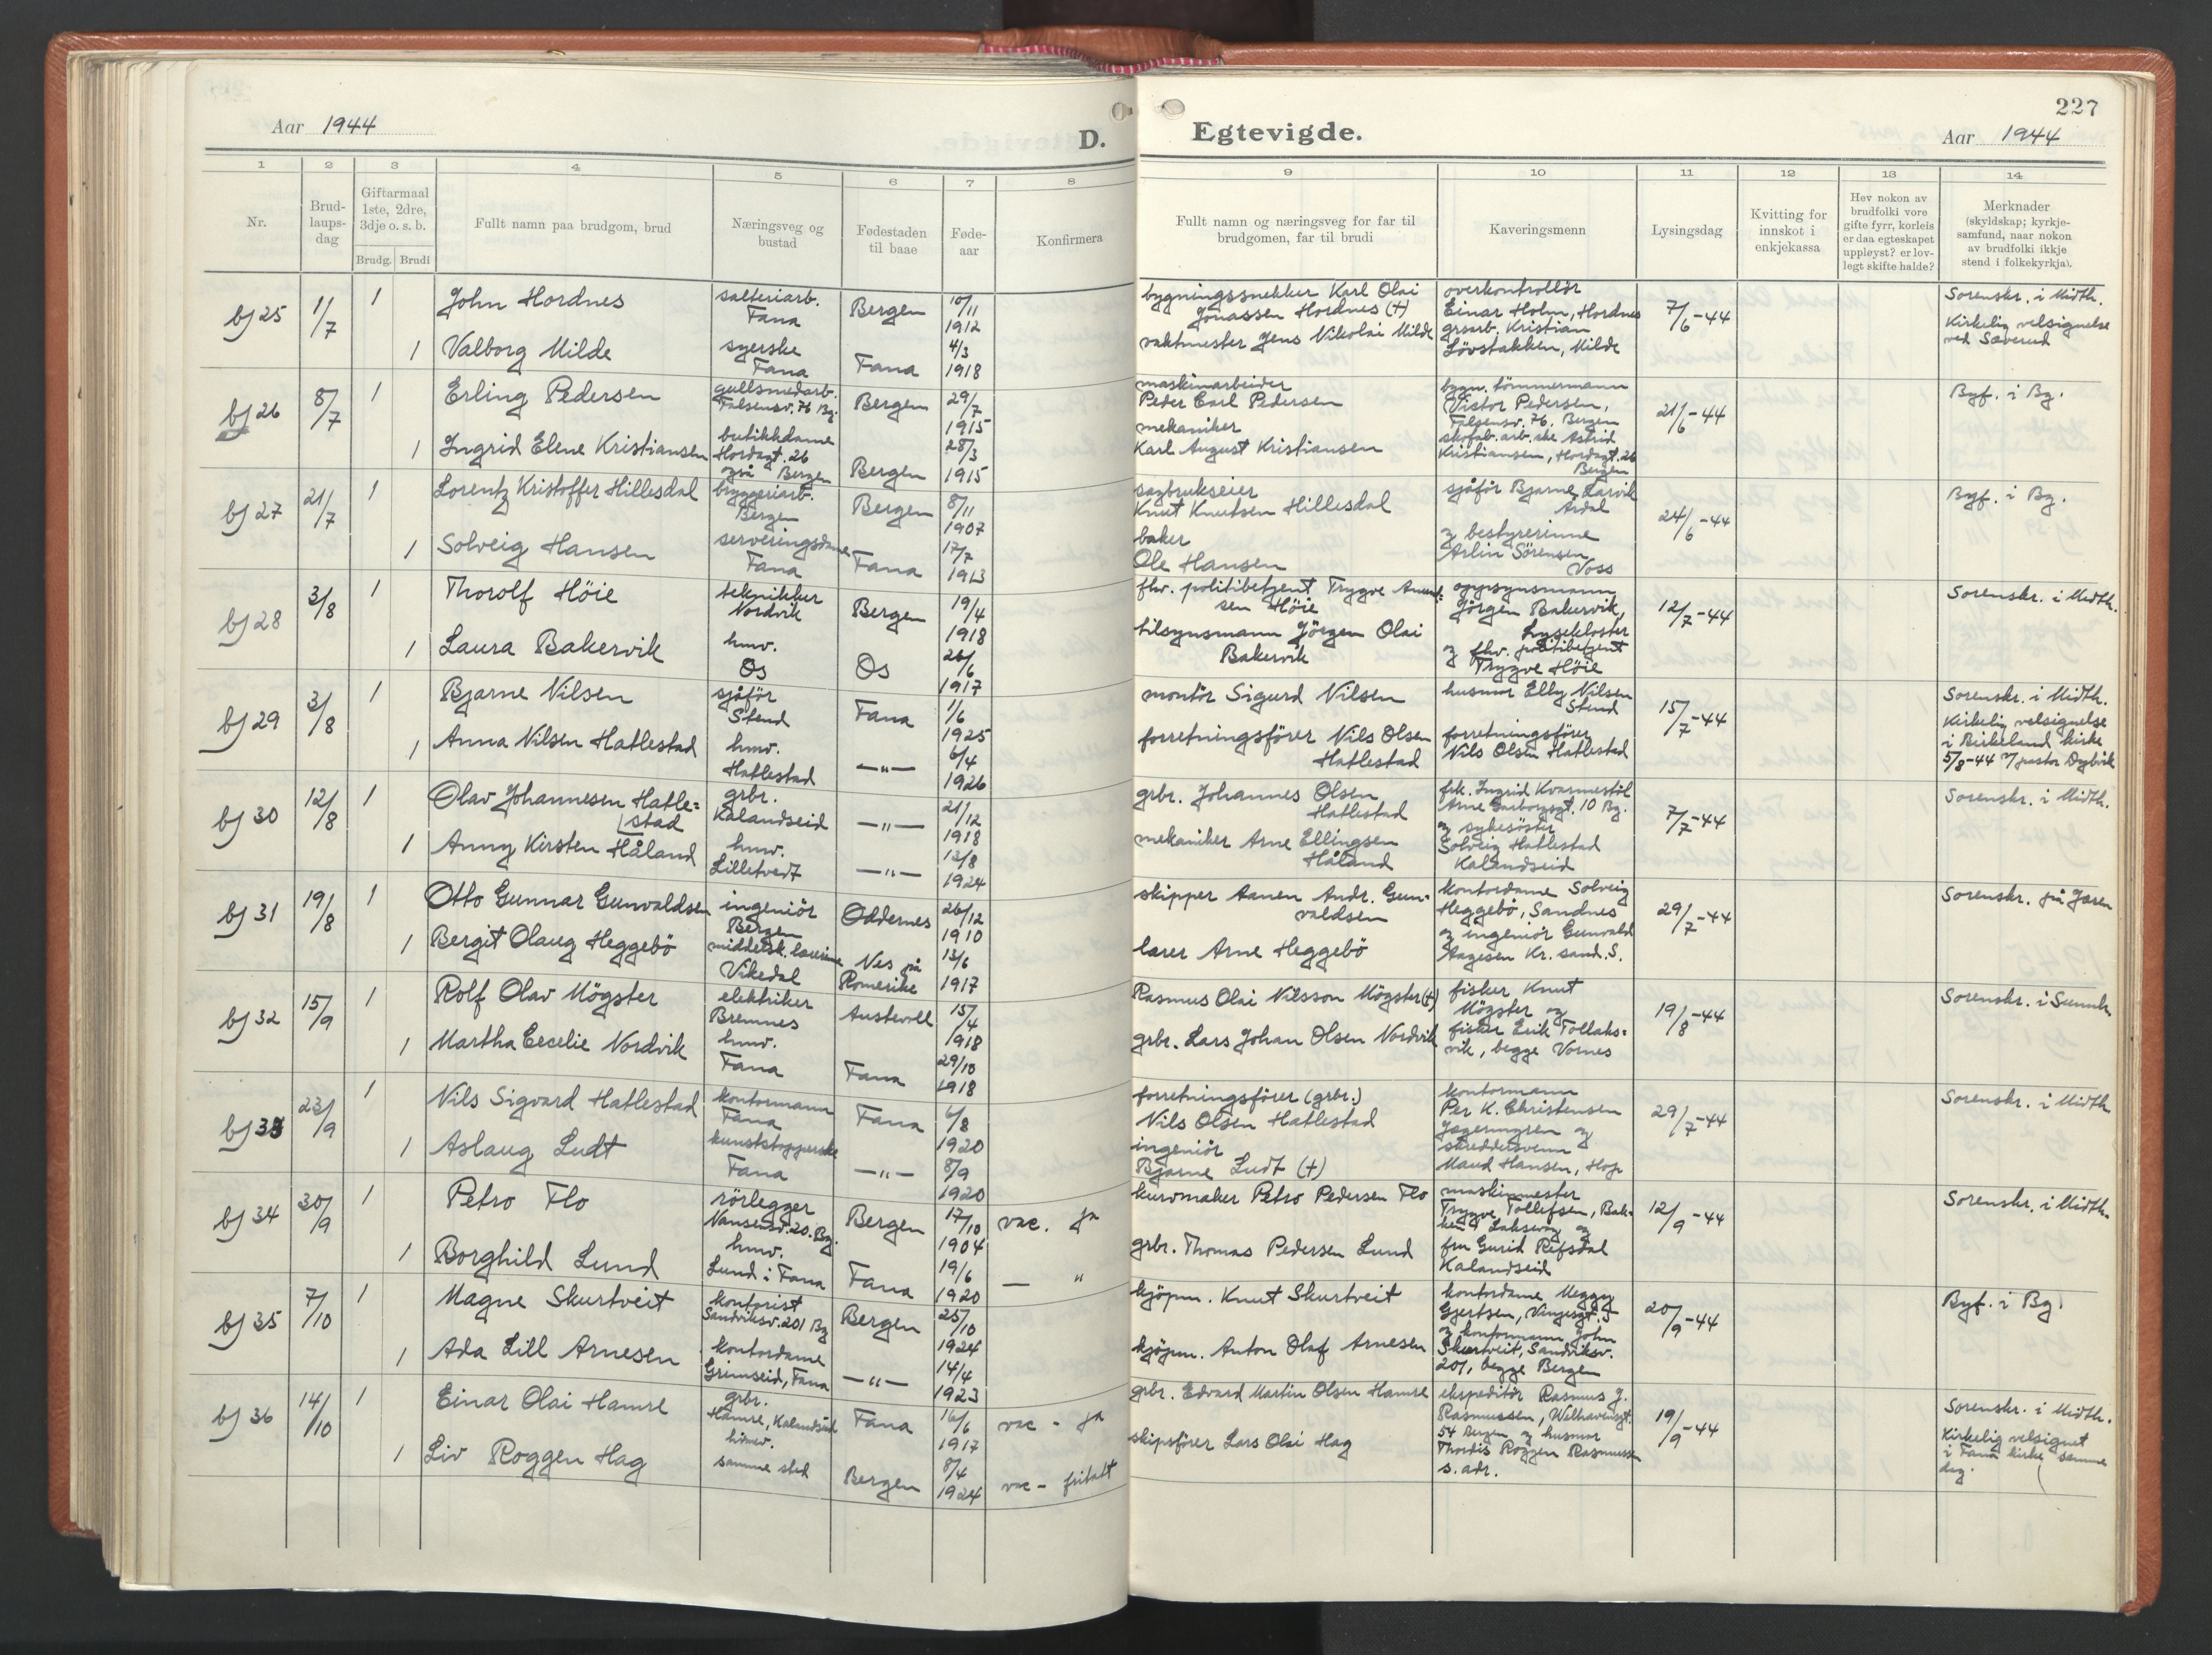 Aar 1944
D. Egtevigde.
227
Aar 1944
1 2 3 4 5 6 7 8 9 10 11 12 13 14
Nr.
Brud-
laups-
dag
Giftarmaal
1ste, 2dre,
3dje o. s. b.
Brudg. Brudi
Fullt namn paa brudgom, brud
Næringsveg og
bustad
Fødestaden
til baae
Føde-
aar
Konfirmera
Fullt namn og næringsveg for far til
brudgomen, far til brudi
Kaveringsmenn
Lysingsdag
Kvitting for
innskot i
enkjekassa
Hev nokon av
brudfolki vore
gifte fyrr, korleis
er daa egteskapet
uppløyst? er lov-
legt skifte halde?
Merknader
(skyldskap; kyrkje-
samfund, naar nokon
av brudfolki ikkje
stend i folkekyrkja).
bj 25
1/7
1
John Hordnes
salteriarb.
Fana
Bergen
10/11
1912
bygningssnekker Karl Olai
Jonassen Hordnes (+)
overkontrollör
Einar Holm, Hordnes
grarb. Kristian
Lövstakken, Milde
7/6-44
Sorenskr. i Midth.
Kirkelig velsignelse
ved Sæverud
1
Valborg Milde
syerske
Fana
Fana
4/3
1918
vaktmester Jens Nikolai Milde
bj 26
8/7
1
Erling Pedersen
gullsmedarb.
Falsensv. 76 Bg.
Bergen
29/7
1915
maskinarbeider
Peder Carl Pedersen
bygn. tömmermann
Victor Pedersen,
Falsensv. 76. Bergen
skofab. arb. ske Astrid
Kristiansen, Hordagt. 26
Bergen
21/6-44
Byf. i Bg.
1
Ingrid Elene Kristiansen
butikkdame
Hordagt. 26
også Bergen
Bergen
28/3
1915
mekaniker
Karl August Kristiansen
bj 27
21/7
1
Lorentz Kristoffer Hillesdal
bryggeriarb.
Bergen
Bergen
8/11
1907
sagbrukseier
Knut Knutsen Hillesdal
sjåför Bjarne Larvik
Årdal
og bestyrerinne
Arlin Sörensen
Voss
24/6-44
Byf. i Bg.
1
Solveig Hansen
serveringsdame
Fana
Fana
17/7
1913
baker
Ole Hansen
bj 28
3/8
1
Thorolf Höie
tekniker
Nordvik
Bergen
19/4
1918
fhv. politibetjent Trygve Amund-
sen Höie
oppsynsmann
Jörgen Bakervik,
Lysekloster
og fhv. politibetjent
Trygve Höie
12/7-44
Sorenskr. i Midth.
1
Laura Bakervik
hmv.
Os
Os
26/6
1917
tilsynsmann Jörgen Olai
Bakervik
bj 29
3/8
1
Bjarne Nilsen
sjåför
Stend
Fana
1/6
1925
montör Sigurd Nilsen
husmor Elly Nilsen
Stend
forretningsförer
Nils Olsen Hatlestad
15/7-44
Sorenskr. i Midth.
Kirkelig velsignelse
i Birkeland kirke
5/8-44 v/ pastor Dybvik
1
Anna Nilsen Hatlestad
hmv.
Hatlestad
—"—
6/4
1926
forretningsförer Nils Olsen
Hatlestad
bj 30
12/8
1
Olav Johannesen Hatle=
stad
grbr.
Kalandseid
—"—
21/12
1918
grbr. Johannes Olsen
Hatlestad
frk. Ingrid Kvarmestöl
Arne Garborgsgt. 10 Bg.
og sykesöster
Solveig Hatlestad
Kalandseid
7/7-44
Sorenskr. i Midth.
1
Anny Kirsten Håland
hmv.
Lilletvedt
—"—
12/8
1924
mekaniker Arne Ellingsen
Håland
bj 31
19/8
1
Otto Gunnar Gunvaldsen
ingeniör
Bergen
Oddernes
26/12
1910
skipper Aanen Andr. Gun-
valdsen
kontordame Solveig
Heggebö, Sandnes
og ingeniör Gunvald
Aagesen Kr. sand. S.
29/7-44
Sorenskr. på Jæren
1
Bergit Olaug Heggebö
Vikedal
Nes på
Romerike
13/6
1917
lærer Arne Heggebö
bj 32
15/9
1
Rolf Olav Mögster
elektriker
Bremnes
Austevoll
15/4
1918
Rasmus Olai Nilsson Mögster (+)
fisker Knut
Mögster og
fisker Erik Tollaks=
vik, begge Vornes
19/8-44
Sorenskr. i Sunnh.
1
Martha Cecelie Nordvik
hmv.
Fana
Fana
29/10
1918
grbr. Lars Johan Olsen Nordvik
bj 33
23/9
1
Nils Sigvard Hatlestad
kontormann
Fana
Fana
6/8
1920
forretningsförer (grbr.)
Nils Olsen Hatlestad
kontormann
Per K. Christensen
og
skreddersvenn
Maud Hansen, Hop
29/7-44
Sorenskr. i Midth.
1
Aslaug Ludt
kunststopperske
Fana
—"—
8/9
1920
ingeniör
Bjarne Ludt (+)
bj 34
30/9
1
Petro Flo
rörlegger
Nansensv. 20. Bg.
Bergen
17/10
1904
vac. ja
kurvmaker Petro Pedersen Flo
maskinmester
Trygve Tollefsen, Bak-
ken Laksevåg og
fru Gurid Refsdal
Kalandseid
12/9-44
Sorenskr. i Midth.
1
Borghild Lund
hmv.
Lund i Fana
Fana
19/6
1920
— "
grbr. Thomas Pedersen Lund
bj 35
7/10
1
Magne Skurtveit
kontorist
Sandviksv. 201 Bg
Bergen
25/10
1924
kjöpm. Knut Skurtveit
kontordame Meggy
Gjertsen, Vinjesgt. 5
og kontormann John
Skurtveit, Sandviksv.
201, begge Bergen
20/9-44
Byf. i Bg.
1
Ada Lill Arnesen
kontordame
Grimseid, Fana
—"—
14/4
1923
kjöpm. Anton Olaf Arnesen
bj 36
14/10
1
Einar Olai Hamre
grbr.
Hamre, Kalandseid
Fana
16/6
1917
vac - ja
grbr. Edvard Martin Olsen Hamre
ekspeditör Rasmus J.
Rasmussen, Welhavensgt.
54 Bergen og husmor
Thordis Roggen Rasmussen
s. adr.
19/9-44
Sorenskr. i Midth.
Kirkelig velsignet
i Fana kirke samme
dag.
1
Liv Roggen Hag
samme sted
Bergen
8/4
1924
vac - fritatt
skipsförer Lars Olai Hag